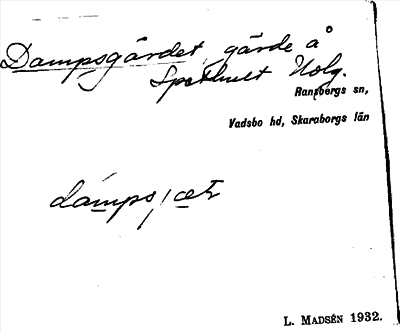 Dampsgärdet, gärde å
Spethult Nolg.
Ransbergs sn,
Vadsbo hd, Skaraborgs län
L. MADSÉN 1932.